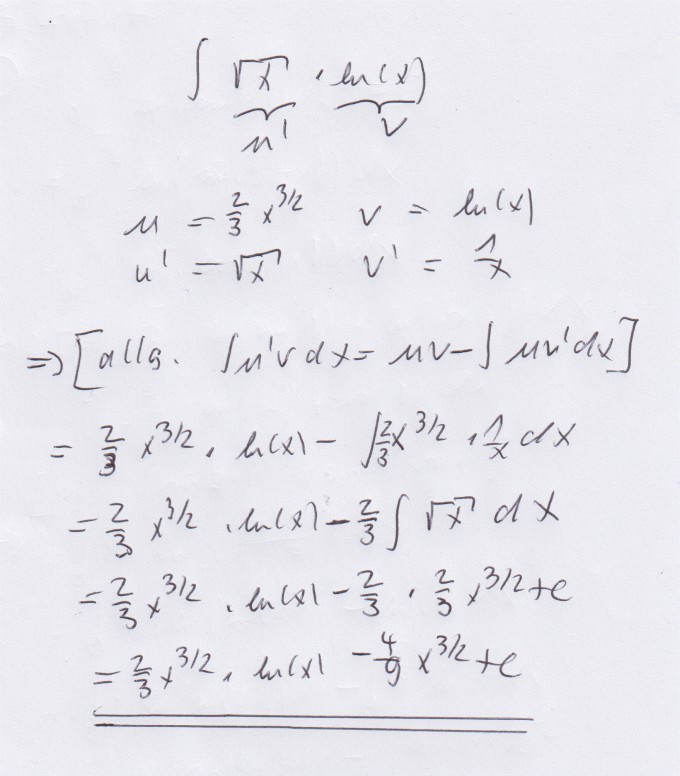 ∫ √x · ln(x)
u' v
u = 2/3 x^3/2 v = ln(x)
u' = √x v' = 1/x
=> [allg. ∫u'v dx = uv - ∫ uv' dx]
= 2/3 x^3/2 · ln(x) - ∫ 2/3 x^3/2 · 1/x dx
= 2/3 x^3/2 · ln(x) - 2/3 ∫ √x dx
= 2/3 x^3/2 · ln(x) - 2/3 · 2/3 x^3/2 + c
= 2/3 x^3/2 · ln(x) - 4/9 x^3/2 + c